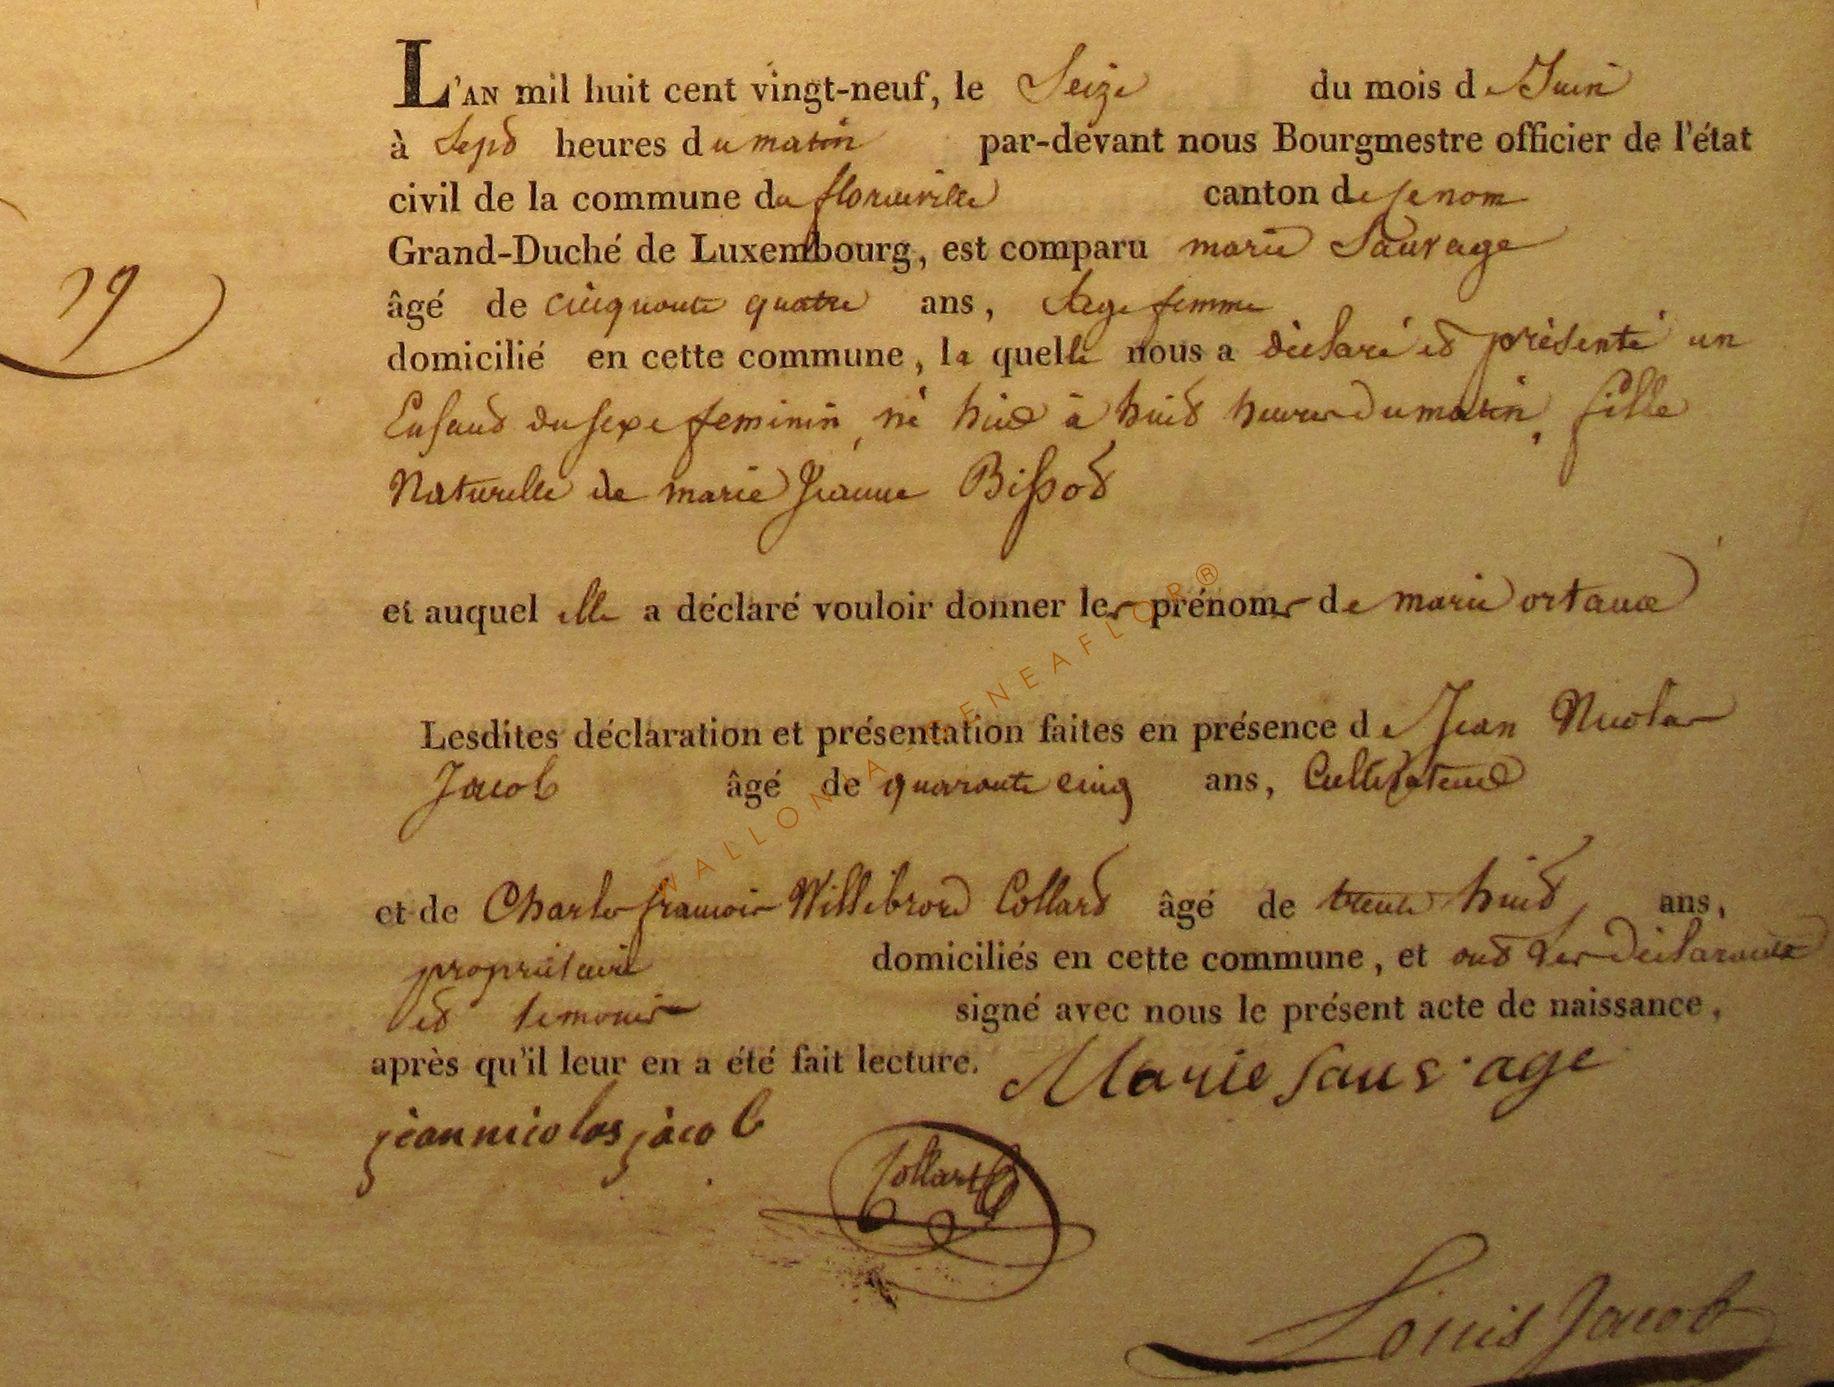 L'AN mil huit cent vingt-neuf, le Seize du mois de Juin
à Sept heures du matin par-devant nous Bourgmestre officier de l'état
civil de la commune de florenville canton de ce nom
Grand-Duché de Luxembourg, est comparu marie Sauvage
âgé de cinquante quatre ans, Sage femme
domicilié en cette commune, la quelle nous a déclaré et présenté un
Enfant du sexe feminin, né hier à huit heures du matin, fille
Naturelle de marie Jeanne Bissot
et auquel elle a déclaré vouloir donner les prénoms de marie ortance
Lesdites déclaration et présentation faites en présence de Jean Nicolas
Jacob âgé de quarante cinq ans, Cultivateur
et de Charles francois Willibrord Collard âgé de trente huit ans,
propriétaire domiciliés en cette commune, et ont les déclarants
et temoins signé avec nous le présent acte de naissance,
après qu'il leur en a été fait lecture. Marie sauvage
jean nicolas jacob
Collart
Louis Jacob
WALLONIA GENEAFLOR®